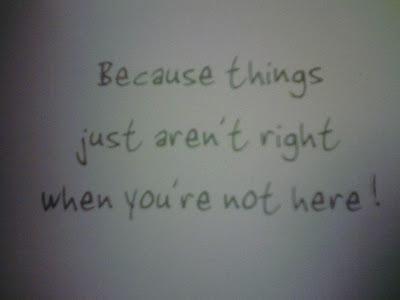 Because things
just aren't right
when you're not here!